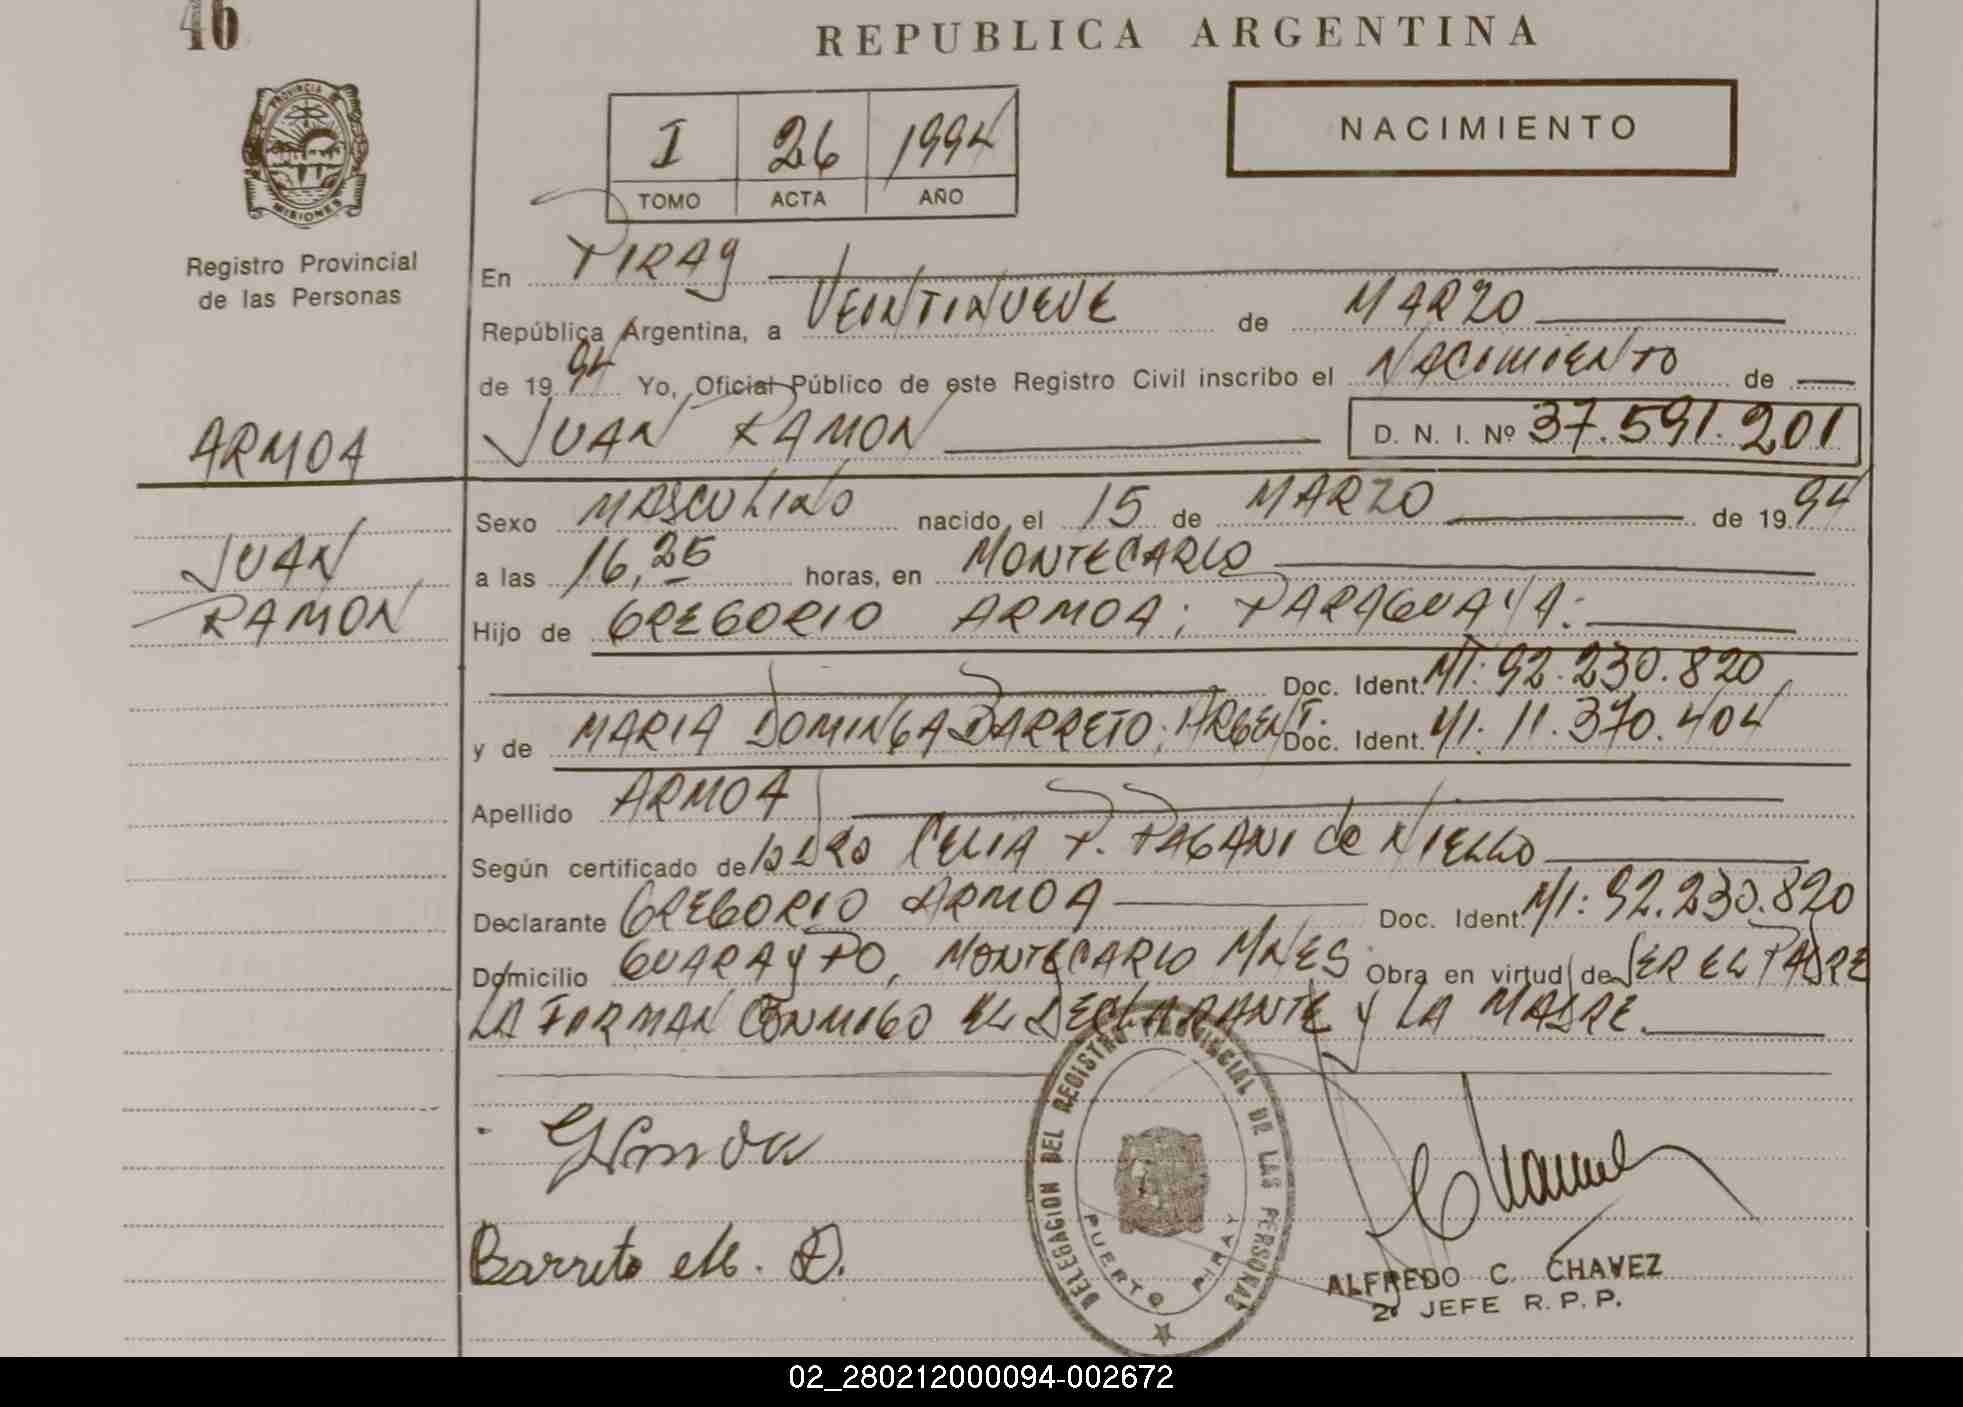 46
REPUBLICA ARGENTINA
PROVINCIA DE
MISIONES
Registro Provincial
de las Personas
I 26 1994
TOMO ACTA AÑO
NACIMIENTO
En PIRAY
República Argentina, a VEINTINUEVE de MARZO
de 1994 Yo, Oficial Público de este Registro Civil inscribo el NACIMIENTO de
ARMOA
JUAN RAMON D. N. I. Nº 37.591.201
Sexo MASCULINO nacido el 15 de MARZO de 1994
JUAN
a las 16,25 horas, en MONTECARLO
RAMON
Hijo de GREGORIO ARMOA; PARAGUAYA:
Doc. Ident. MI: 92.230.820
y de MARIA DOMINGA BARRETO; ARGENT. Doc. Ident. MI: 11.370.404
Apellido ARMOA
Según certificado de la DRA CELIA P. PAGANI de NIELLO
Declarante GREGORIO ARMOA Doc. Ident. MI: 92.230.820
Domicilio GUARAYPO, MONTECARLO MNES Obra en virtud de SER EL PADRE
LA FIRMAN CONMIGO EL DECLARANTE Y LA MADRE.
DELEGACION DEL REGISTRO PROVINCIAL DE LAS PERSONAS
PUERTO PIRAY
Barreto M. D.
ALFREDO C. CHAVEZ
2º JEFE R. P. P.
02_280212000094-002672